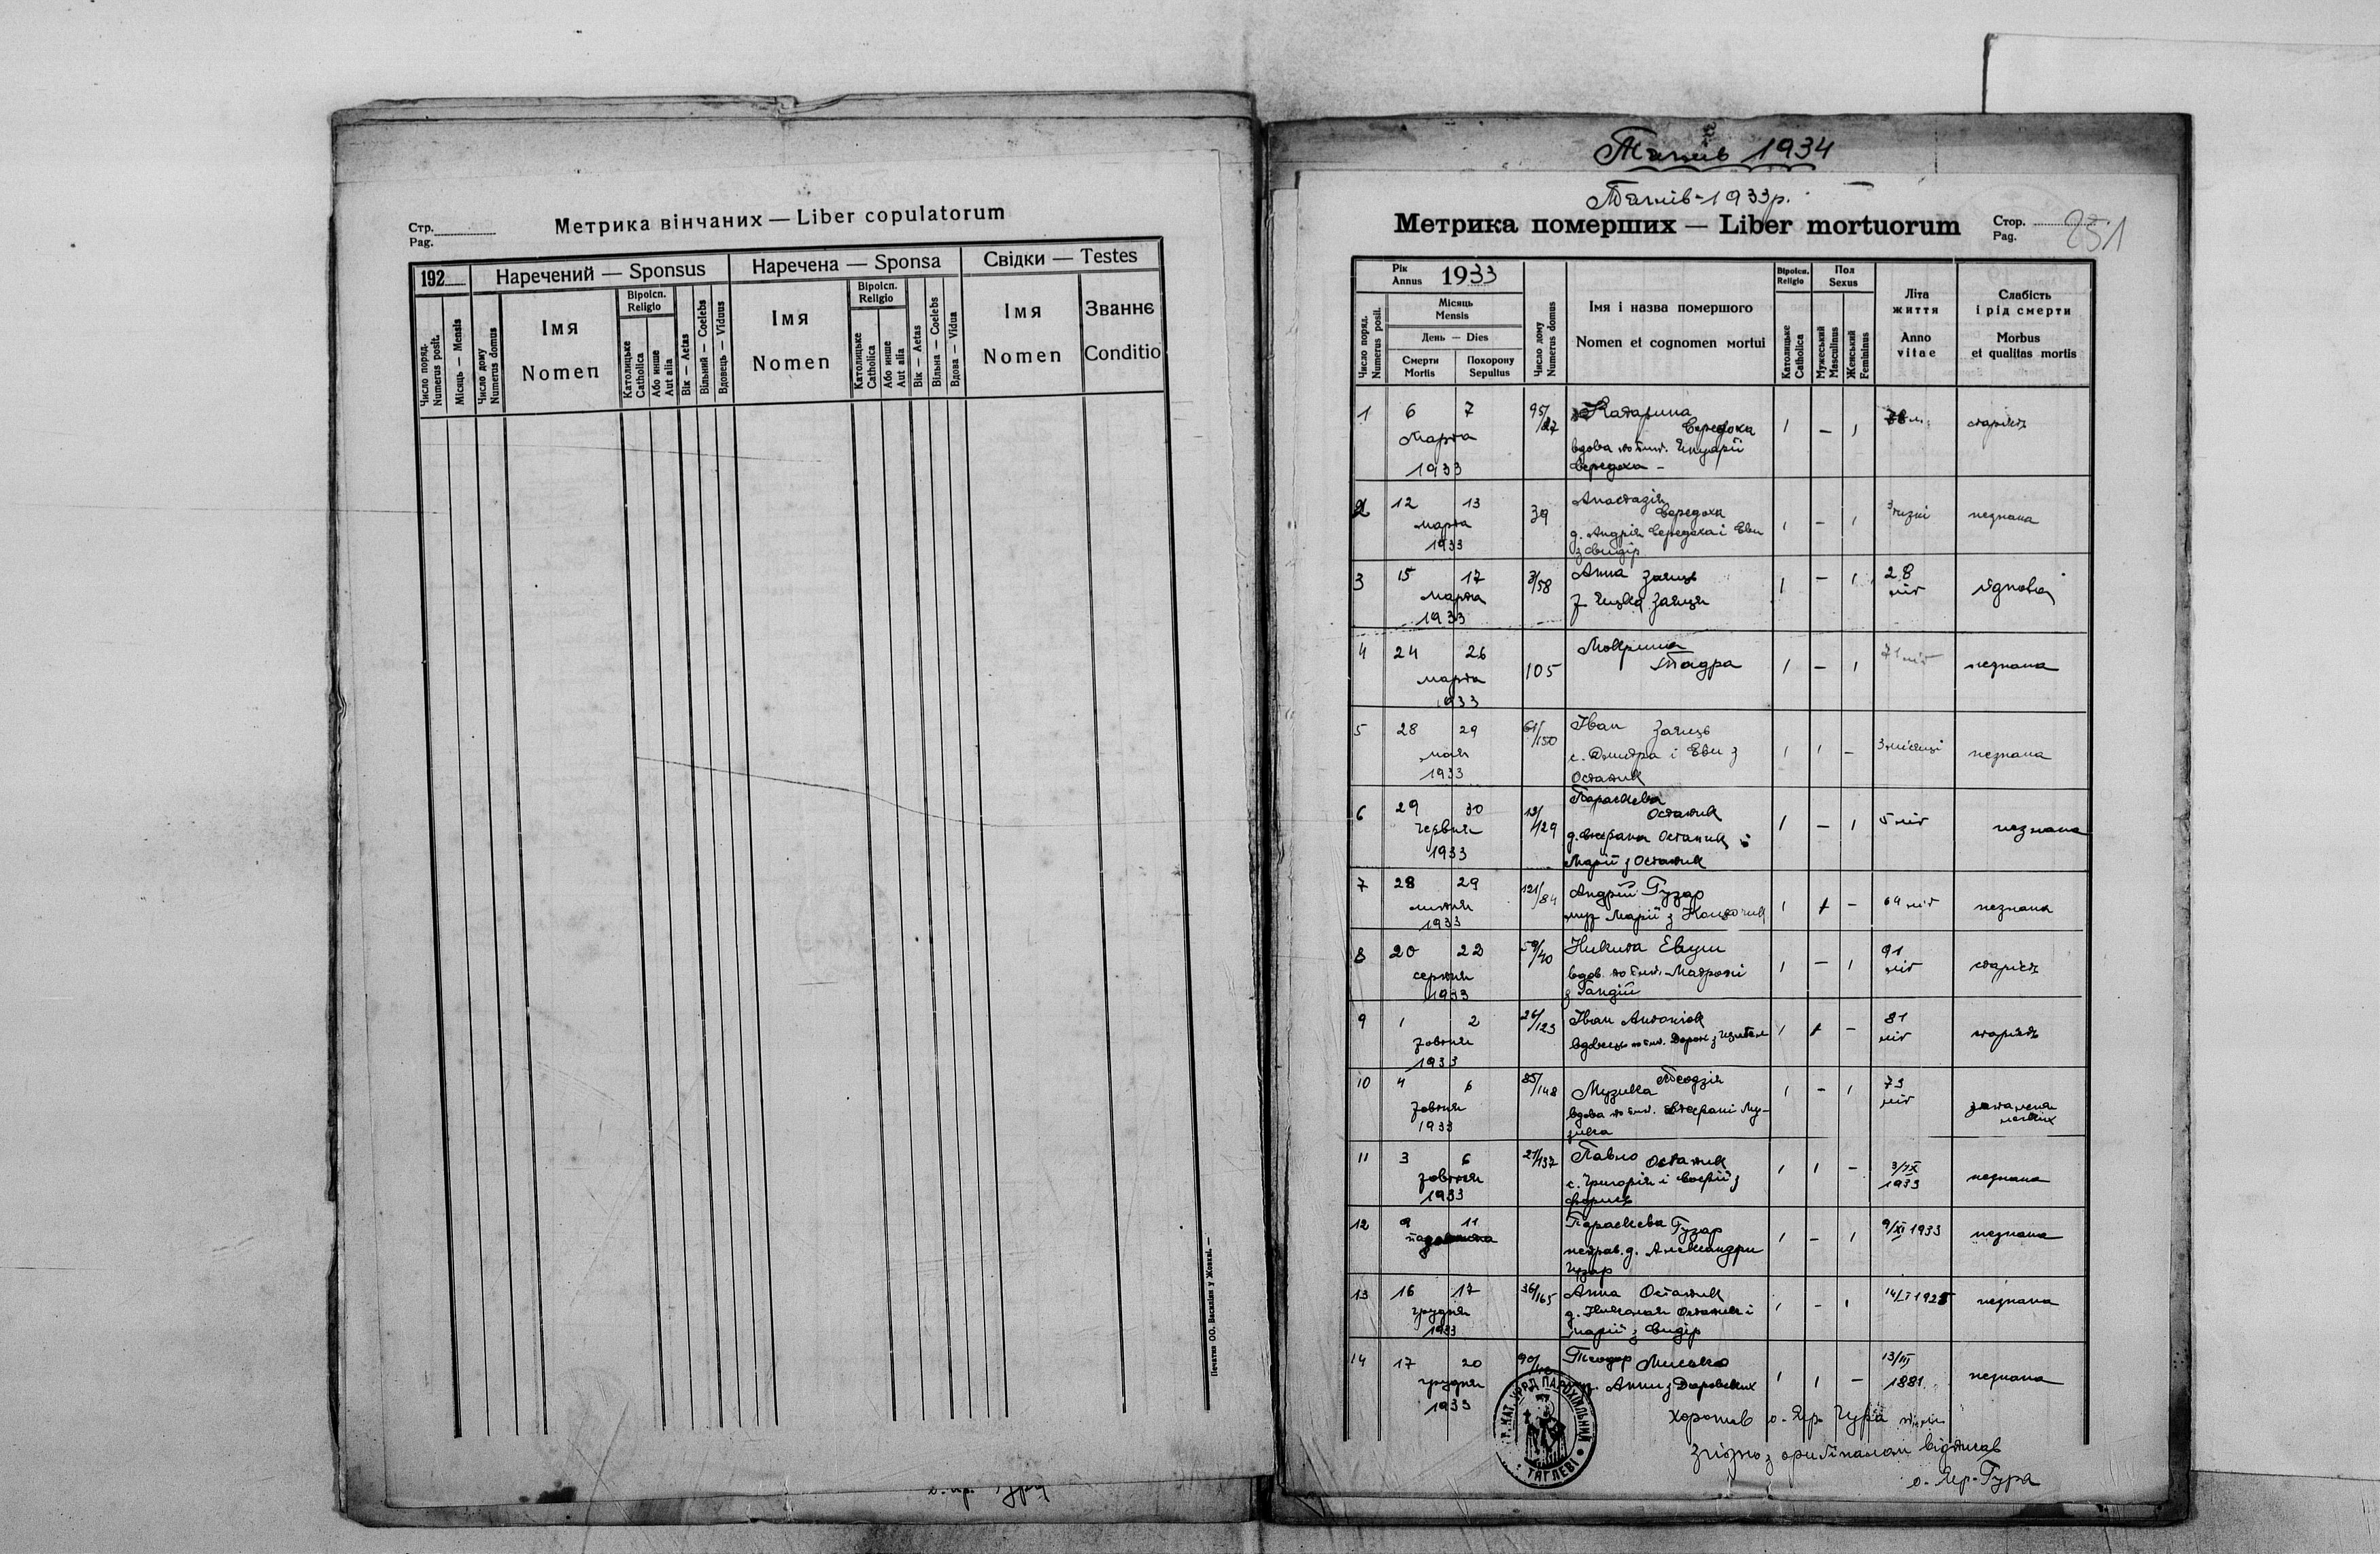 Стр.
Pag.
Метрика вінчаних — Liber copulatorum
192
Наречений — Sponsus
Наречена — Sponsa
Свідки — Testes
Число поряд.
Numerus posit.
Місяць — Mensis
Число дому
Numerus domus
Імя
Nomen
Віроісп.
Religio
Католицьке
Catholica
Або инше
Aut alia
Вік — Aetas
Вільний — Coelebs
Вдовець — Viduus
Імя
Nomen
Віроісп.
Religio
Католицьке
Catholica
Або инше
Aut alia
Вік — Aetas
Вільна — Coelebs
Вдова — Vidua
Імя
Nomen
Званнє
Conditio
Печатня ОО. Василіян у Жовкві. —
1934
1933р.
Метрика померших — Liber mortuorum
Стор.
Pag.
251
Рік
Annus
1933
Число поряд.
Numerus posit.
Місяць
Mensis
День — Dies
Смерти
Mortis
Похорону
Sepultus
Число дому
Numerus domus
Імя і назва померш­ого
Nomen et cognomen mortui
Віроісп.
Religio
Католицьке
Catholica
Пол
Sexus
Мужеський
Masculinus
Женський
Femininus
Літа
життя
Anno
vitae
Слабість
і рід смерти
Morbus
et qualitas mortis
1 6 7 95/27 Катарина 1 — 1 старість
Марта
вдова по
1933
2 12 13 39 Анастазія 1 — 1 незнана
марта
д. Андрія і Еви
1933
3 15 17 3/58 Анна Заяць 1 — 1 28 літ
марта
з Заяця
1933
4 24 26 105 Мокрина 1 — 1 71 літ незнана
марта
1933
5 28 29 61/150 Іван Заяць 1 1 — 3 місяці незнана
мая
с. Дмитра і Еви з
1933
Остапик
6 29 30 129 Параскева 1 — 1 5 літ незнана
червня
Остапик
д. Стефана Остапик і
1933
Марії з Остапик
7 28 29 121/84 Андрій Гузар 1 1 — 64 літ незнана
липня
муж Марії з
1933
8 20 22 59/40 Никита 1 — 1 91 літ старість
серпня
вдов. по Матрони
1933
9 1 2 26/123 Іван Антонюк 1 1 — 81 літ старість
жовтня
вдовець по
1933
10 4 6 85/148 Музика Теодзія 1 — 1 73 літ запаленя легких
жовтня
вдова по Стефані Му-
1933
зика
11 3 6 21/137 Павло Остапик 1 1 — 3/IX 1933 незнана
жовтня
с. Григорія і Софії з
1933
12 9 11 Параскева Гузар 1 — 1 9/XI 1933 незнана
неправ. д. Александри
Гузар
13 16 17 36/165 Анна Остапик 1 — 1 14/I 1925 незнана
грудня
д. Николая Остапик і
1933
Марії з
14 17 20 Теодор 1 1 — 13/III 1881 незнана
грудня
Анни з
1933
хоронив о. Яр. Гура
Згідно з оригіналом відписав
о. Яр. Гура
Гр. КАТ. УРЯД ПАРОХІЯЛЬНИЙ
ТЯГЛЕВІ